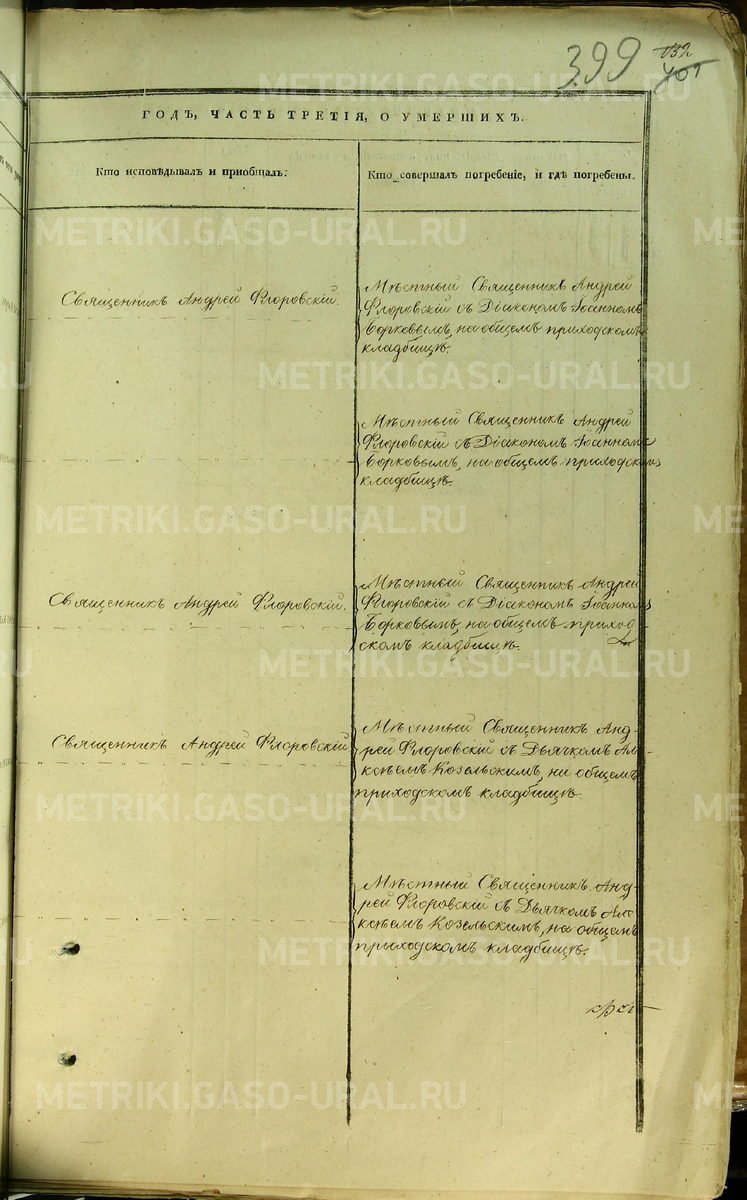 399
132
ГОДЪ, ЧАСТЬ ТРЕТІЯ, О УМЕРШИХЪ.
Кто исповѣдывалъ и пріобщалъ.
Кто совершалъ погребеніе, и гдѣ погребены.
Священникъ Андрей Флоровскій.
Мѣстный Священникъ Андрей
Флоровскій съ Діакономъ Іоанномъ
Борковымъ, на общемъ приходскомъ
кладбищѣ.
Мѣстный Священникъ Андрей
Флоровскій съ Діакономъ Іоанномъ
Борковымъ, на общемъ приходскомъ
кладбищѣ.
Священникъ Андрей Флоровскій.
Мѣстный Священникъ Андрей
Флоровскій съ Діакономъ Іоанномъ
Борковымъ, на общемъ приход
скомъ кладбищѣ.
Священникъ Андрей Флоровскій
Мѣстный Священникъ Анд-
рей Флоровскій съ Дьячкомъ Але-
ксѣемъ Козельскимъ, на общемъ
приходскомъ кладбищѣ.
Мѣстный Священникъ Анд-
рей Флоровскій съ Дьячкомъ Але
ксѣемъ Козельскимъ, на общемъ
приходскомъ кладбищѣ.
METRIKI.GASO-URAL.RU